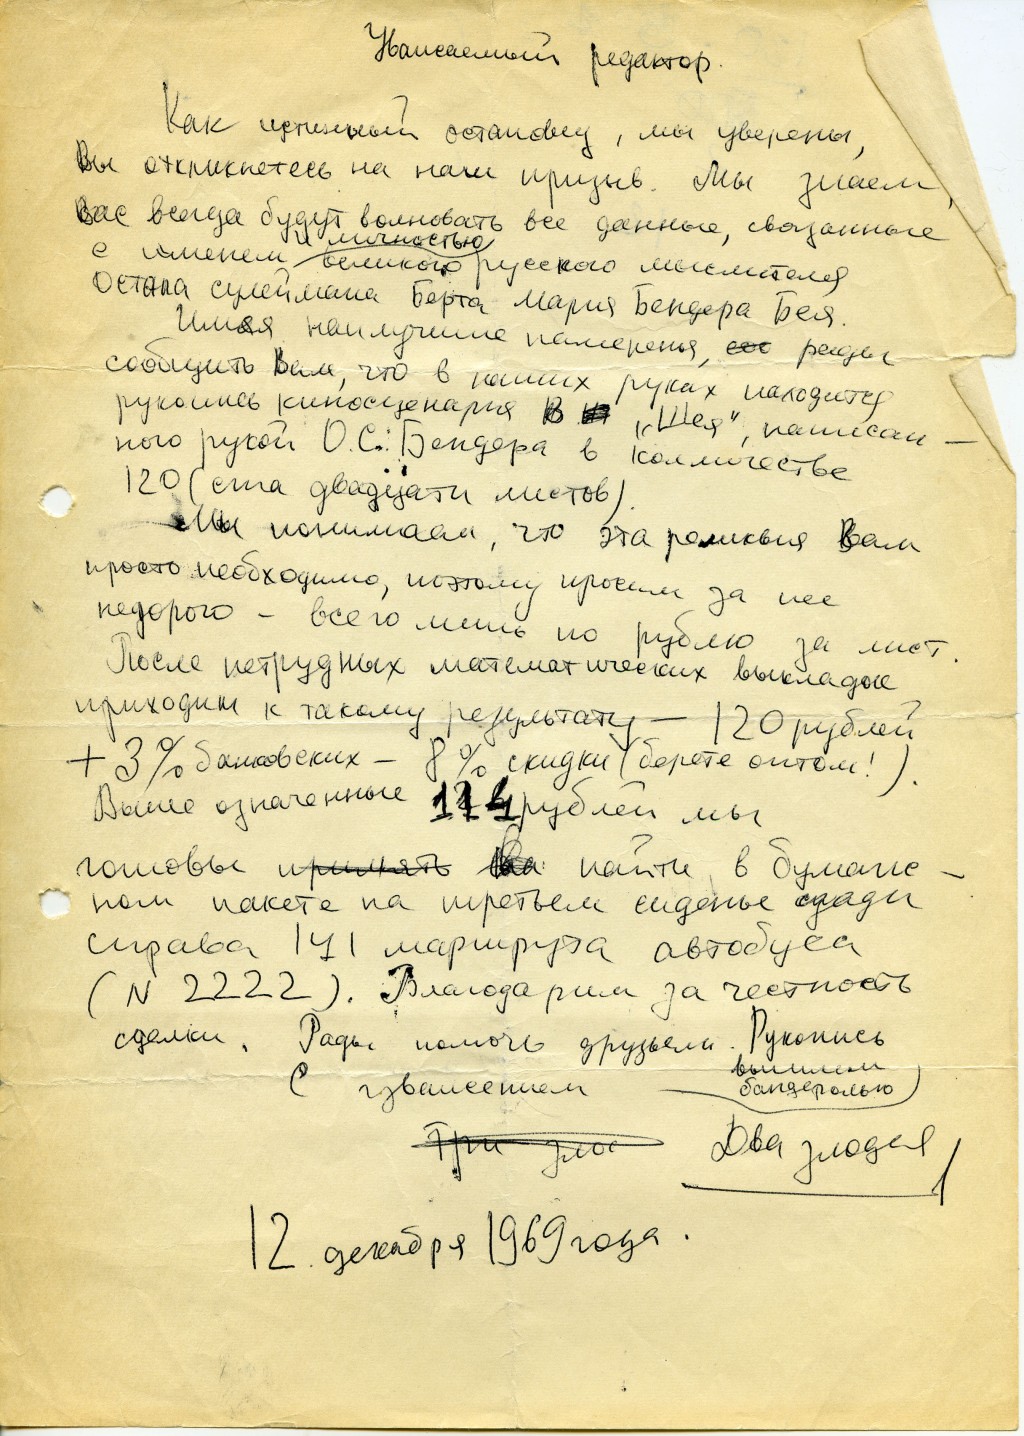 Уважаемый редактор.
Как истинный остановец, мы уверены,
Вы откликнетесь на наш призыв. Мы знаем,
Вас всегда будут волновать все данные, связанные
с именем и личностью великого русского мыслителя
Остапа сулеймана Берта Мария Бендера Бея.
Имея наилучшие намеренья, рады
сообщить Вам, что в наших руках находится
рукопись киносценария "Шея", написан-
ного рукой О.С. Бендера в колличестве
120 (ста двадцати листов).
Мы понимаем, что эта реликвия Вам
просто необходимо, поэтому просим за нее
недорого - всего лишь по рублю за лист.
После нетрудных математических выкладок
приходим к такому результату - 120 рублей
+ 3% банковских - 8% скидки (берете оптом!).
Выше означенные 114 рублей мы
готовы принять Ва найти в бумаж-
ном пакете на третьем сиденье сзади
справа 141 маршрута автобуса
(N 2222). Благодарим за честность
сделки. Рады помочь друзьям. Рукопись
вышлем
бандеролью
С уважением
Три зло Два злодея
12 декабря 1969 года.